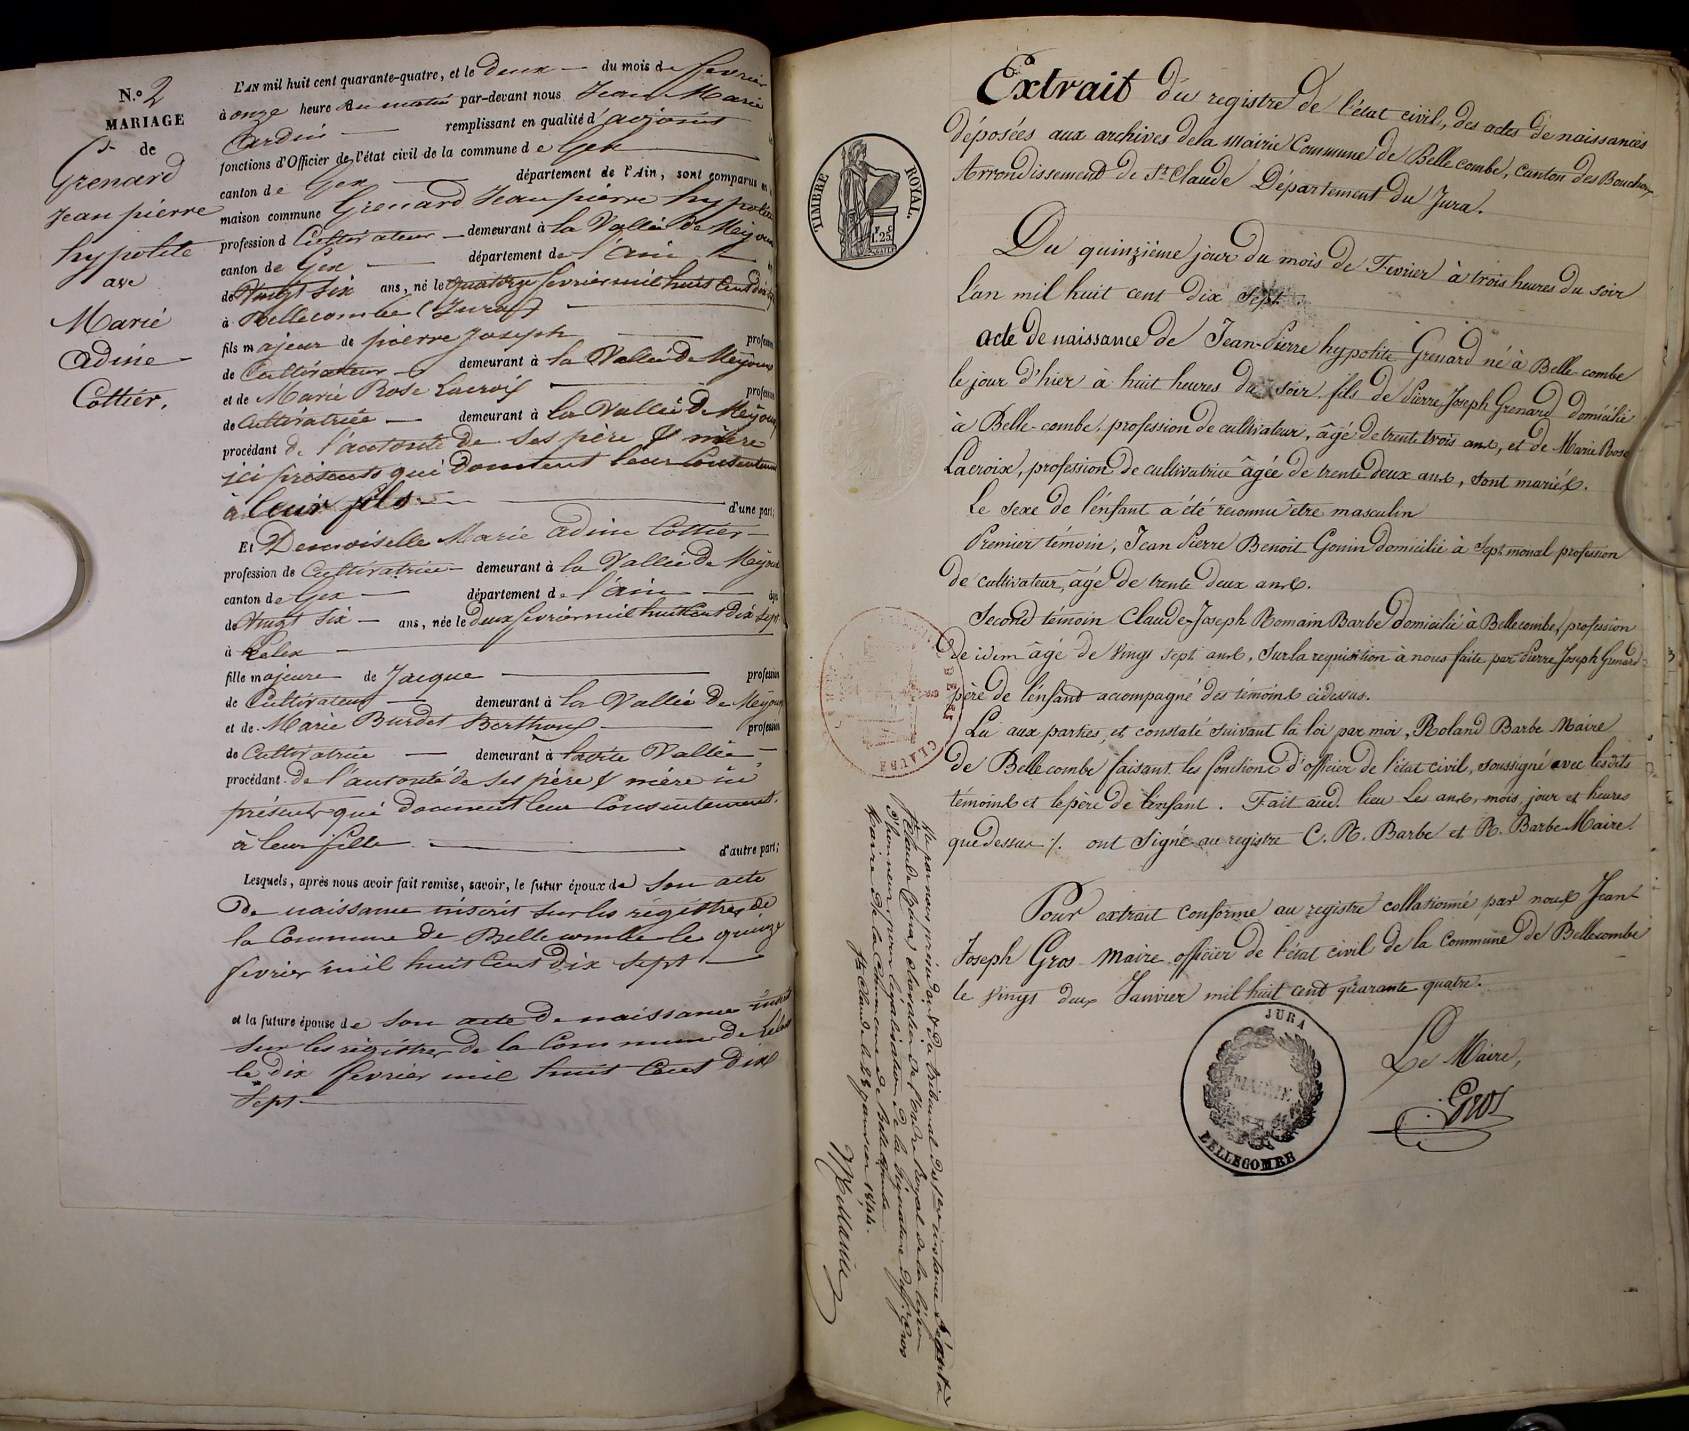 N.º 2
MARIAGE
de
Grenard
Jean pierre
hypolite
avec
Marie
adine
Cottier.
L'AN mil huit cent quarante-quatre, et le deux du mois de fevrier
à onze heure du matin par-devant nous Jean Marie
remplissant en qualité d'adjoint
fonctions d'Officier de l'état civil de la commune de Gex
canton de Gex département de l'Ain, sont comparus en
maison commune Grenard Jean pierre hypolite
profession d Cultivateur demeurant à la Vallée De Mijoux
canton de Gex département de l'ain
de Vingt Six ans, né le quatorze fevrier mil huit Cent dix sept
à Bellecombe (Jura)
fils majeur de pierre Joseph profession
de Cultivateur demeurant à la Vallée De Meijoux
et de Marie Rose Lacroix profession
de Cultivatrice demeurant à la Vallée De Meijoux
procédant de l'autorité de ses père & mère
ici présents qui donnent leur Consentement
à leur fils d'une part;
Et Demoiselle Marie adine Cottier
profession de Cultivatrice demeurant à la Vallée De Mijoux
canton de Gex département de l'ain
de Vingt Six ans, née le Deux fevrier mil huit Cent Dix Sept
à Lelex
fille majeure de Jacque profession
de Cultivateur demeurant à la Vallée De Mijoux
et de Marie Burdet Berthous profession
de Cultivatrice demeurant à Vallée
procédant de l'autorité de ses père & mère ici
présents qui donnent leur Consentement
à leur fille d'autre part;
Lesquels, après nous avoir fait remise, savoir, le futur époux de son acte
De naissance inscrit sur les régistres de
la Commune De Bellecombe le quinze
fevrier mil huit Cent Dix Sept
et la future épouse de son acte De naissance inscrit
sur les régistres De la Commune De Lelex
le Dix fevrier mil huit Cent Dix
Sept
TIMBRE ROYAL.
1.25
Extrait du registre de l'état civil, des actes de naissances
déposées aux archives de la mairie Commune de Belle combe, canton des Bouchoux
Arrondissement de St Claude Département du Jura.
Du quinzième jour du mois de Fevrier à trois heures du soir
L'an mil huit cent dix sept
acte de naissance de Jean-Pierre hypolite Grenard né à Belle-combe
le jour d'hier à huit heures du soir fils de Pierre Joseph Grenard domicilié
à Belle-combe, profession de cultivateur, âgé de trente trois ans, et de Marie Rose
Lacroix, profession de cultivatrice âgée de trente deux ans, sont mariés.
Le sexe de l'enfant a été reconnu être masculin
Premier témoin, Jean Pierre Benoit Gouin domicilié à Septmonal profession
de cultivateur, âgé de trente deux ans.
Second témoin Claude-Joseph Romain Barbe domicilié à Bellecombe, profession
de idem âgé de vingt sept ans, Sur la requisition à nous faite par Pierre Joseph Grenard
père de l'enfant accompagné des témoins cidessus.
Lu aux parties, et constaté suivant la loi par moi, Roland Barbe Maire
de Bellecombe faisant les fonctions d'officier de l'état civil, soussigné avec les dits
témoins et le père de l'enfant. Fait aud. lieu les ans, mois, jour et heures
que dessus /. ont signé au registre C. R. Barbe et R. Barbe Maire.
Pour extrait conforme au registre collationné par nous Jean-
Joseph Gros Maire officier de l'état civil de la Commune de Bellecombe
le vingt deux Janvier mil huit cent quarante quatre.
Le Maire,
Gros
JURA
MAIRIE
BELLECOMBE
CLAUDE
Vu par nous président du tribunal de 1ère instance séant à
St Claude (Jura) chevalier de l'ordre Royal de la légion
d'honneur, pour légalisation de la signature de Mr Gros
Maire de la Commune de Bellecombe
St Claude le 23 janvier 1844.